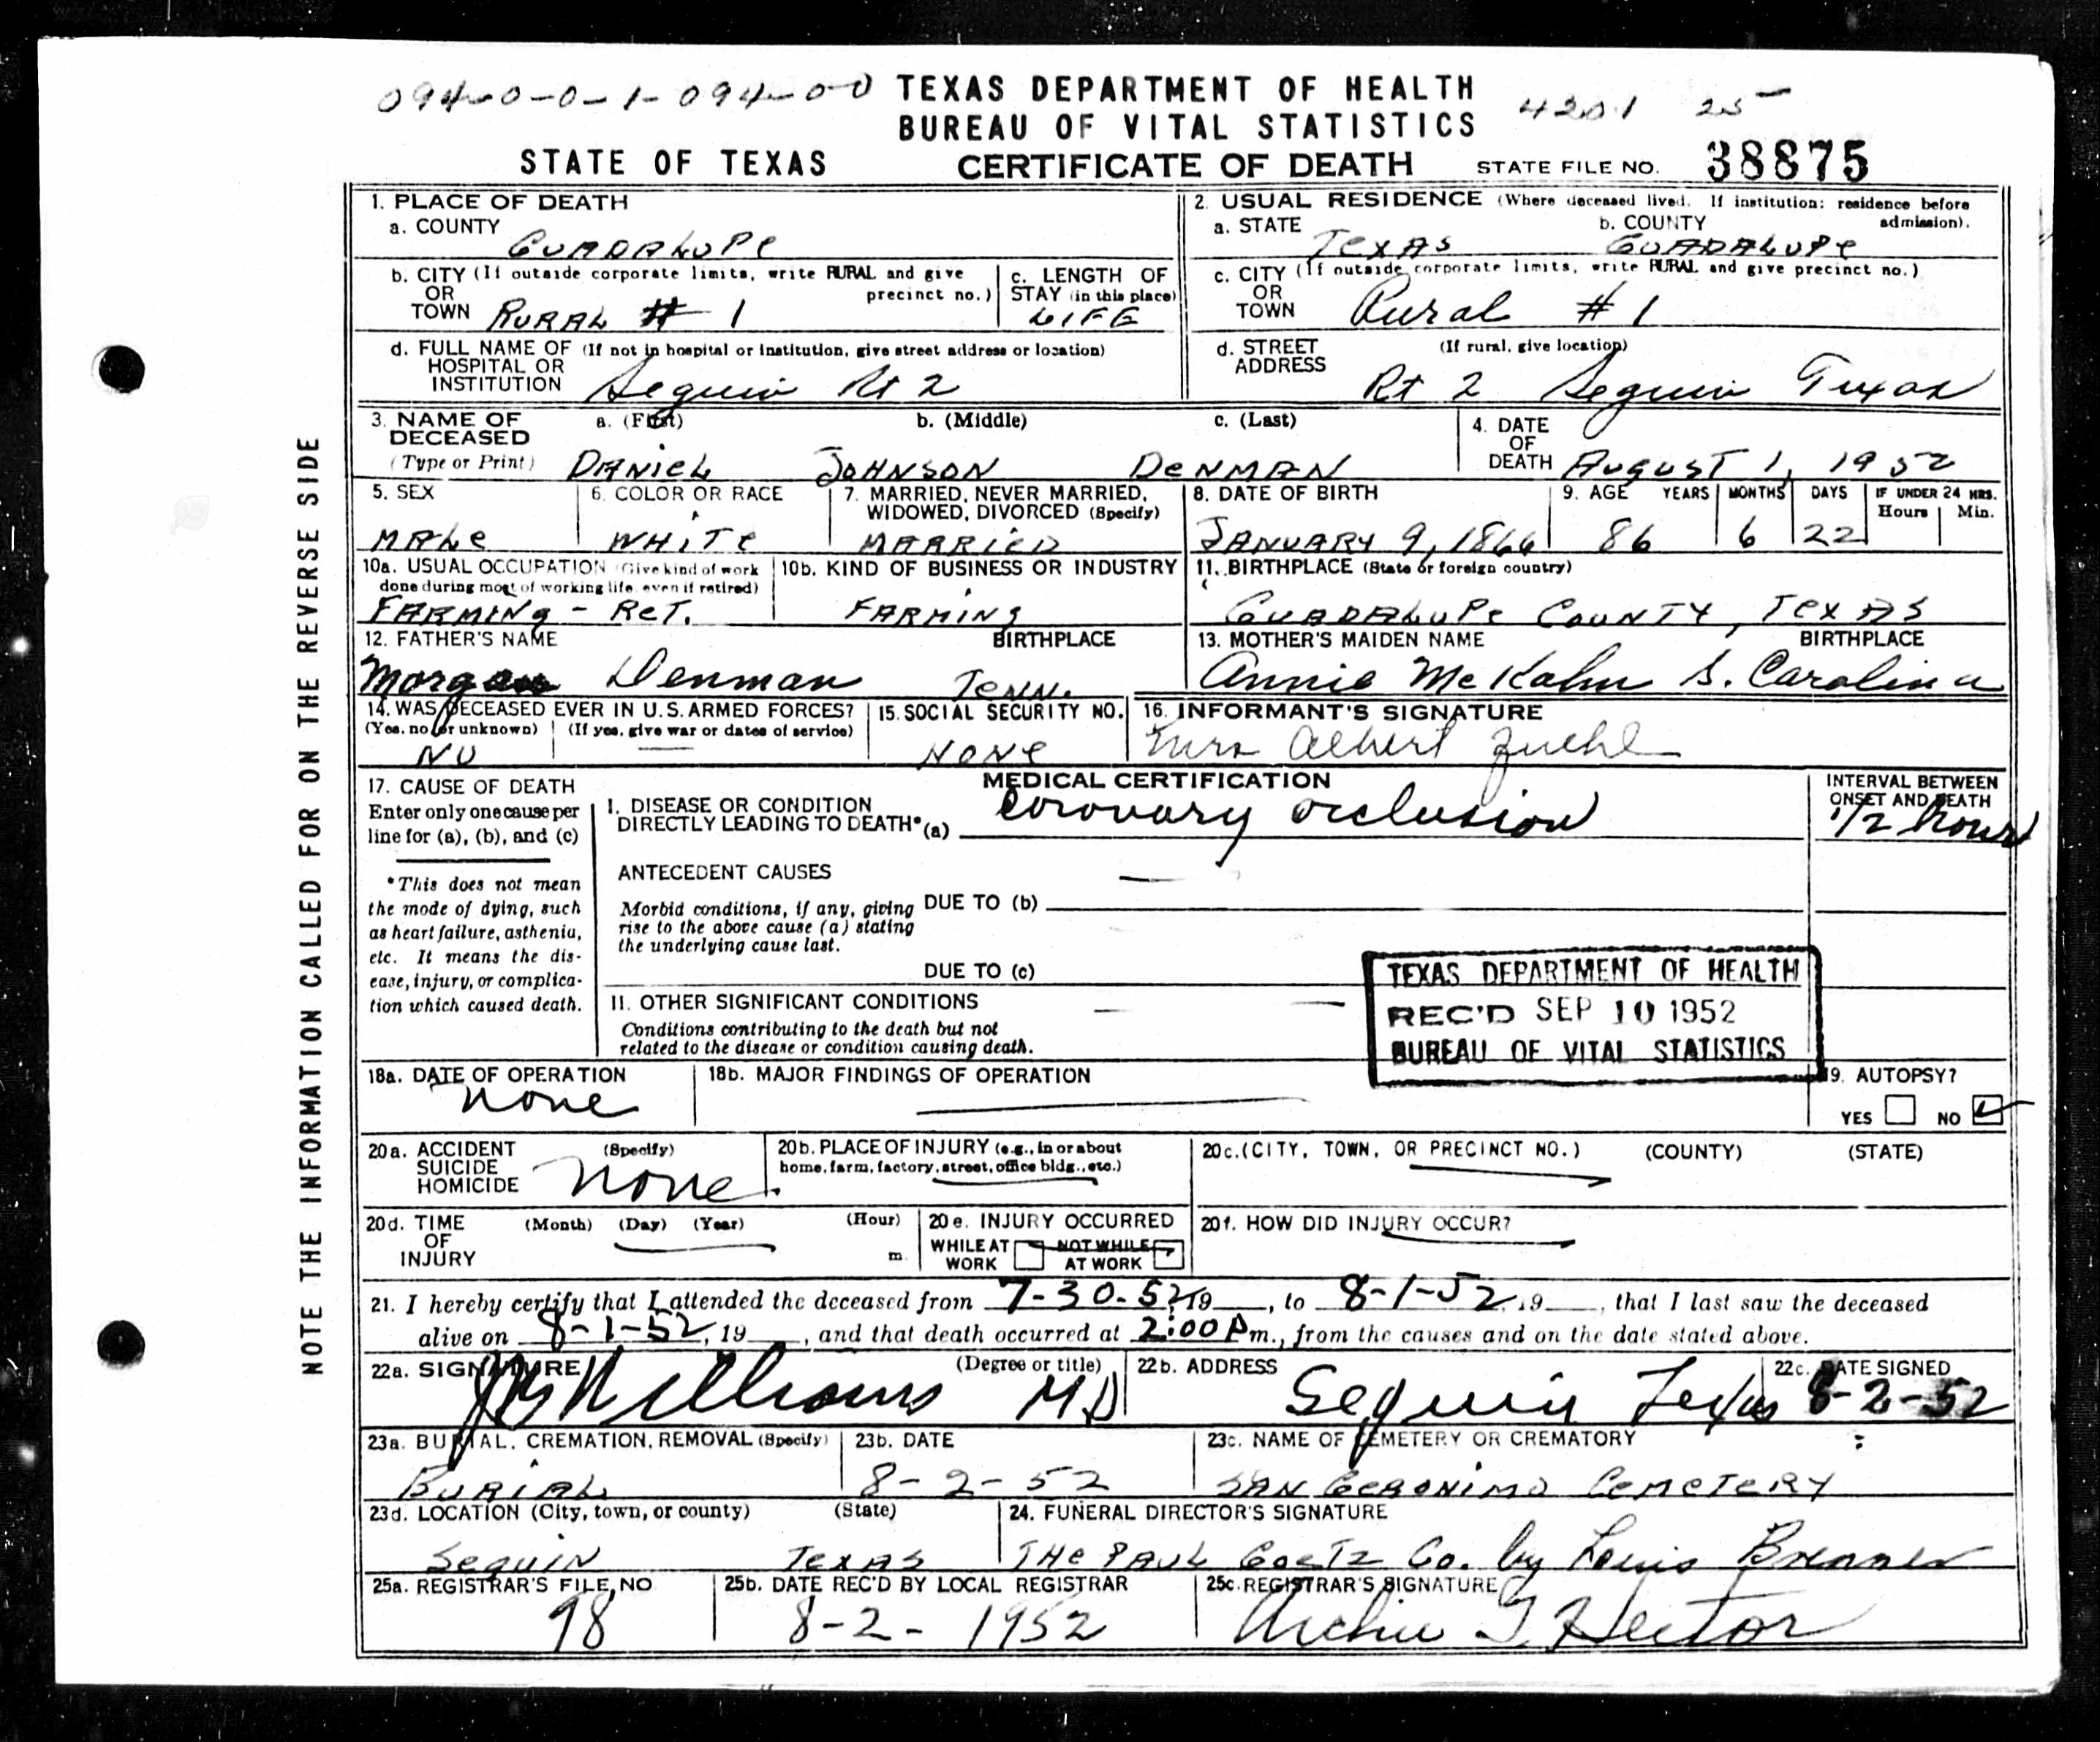 094-0-0-1-094-0-0 TEXAS DEPARTMENT OF HEALTH 4201 25-
BUREAU OF VITAL STATISTICS
STATE OF TEXAS CERTIFICATE OF DEATH STATE FILE NO. 38875
NOTE THE INFORMATION CALLED FOR ON THE REVERSE SIDE
1. PLACE OF DEATH
a. COUNTY GUADALUPE
2. USUAL RESIDENCE (Where deceased lived. If institution: residence before admission).
a. STATE TEXAS b. COUNTY GUADALUPE
b. CITY (If outside corporate limits, write RURAL and give precinct no.)
OR
TOWN RURAL # 1
c. LENGTH OF
STAY (in this place)
LIFE
c. CITY (If outside corporate limits, write RURAL and give precinct no.)
OR
TOWN Rural # 1
d. FULL NAME OF (If not in hospital or institution, give street address or location)
HOSPITAL OR
INSTITUTION Seguin Rt 2
d. STREET (If rural, give location)
ADDRESS Rt 2 Seguin Texas
3. NAME OF a. (First) b. (Middle) c. (Last)
DECEASED
(Type or Print) DANIEL JOHNSON DENMAN
4. DATE
OF
DEATH AUGUST 1, 1952
5. SEX
MALE
6. COLOR OR RACE
WHITE
7. MARRIED, NEVER MARRIED,
WIDOWED, DIVORCED (Specify)
MARRIED
8. DATE OF BIRTH
JANUARY 9, 1866
9. AGE YEARS MONTHS DAYS IF UNDER 24 HRS.
Hours Min.
86 6 22
10a. USUAL OCCUPATION (Give kind of work
done during most of working life, even if retired)
FARMING - RET.
10b. KIND OF BUSINESS OR INDUSTRY
FARMING
11. BIRTHPLACE (State or foreign country)
GUADALUPE COUNTY, TEXAS
12. FATHER'S NAME BIRTHPLACE
Morgan Denman Tenn.
13. MOTHER'S MAIDEN NAME BIRTHPLACE
Annie McKahn S. Carolina
14. WAS DECEASED EVER IN U.S. ARMED FORCES?
(Yes, no or unknown) (If yes, give war or dates of service)
NO
15. SOCIAL SECURITY NO.
NONE
16. INFORMANT'S SIGNATURE
Mrs Albert Zuehl
MEDICAL CERTIFICATION
17. CAUSE OF DEATH
Enter only one cause per
line for (a), (b), and (c)
*This does not mean
the mode of dying, such
as heart failure, asthenia,
etc. It means the dis-
ease, injury, or complica-
tion which caused death.
I. DISEASE OR CONDITION
DIRECTLY LEADING TO DEATH* (a) Coronary occlusion
INTERVAL BETWEEN
ONSET AND DEATH
1/2 hour
ANTECEDENT CAUSES
Morbid conditions, if any, giving
rise to the above cause (a) stating
the underlying cause last.
DUE TO (b)
DUE TO (c)
II. OTHER SIGNIFICANT CONDITIONS
Conditions contributing to the death but not
related to the disease or condition causing death.
TEXAS DEPARTMENT OF HEALTH
REC'D SEP 10 1952
BUREAU OF VITAL STATISTICS
18a. DATE OF OPERATION
none
18b. MAJOR FINDINGS OF OPERATION
19. AUTOPSY?
YES NO
20a. ACCIDENT (Specify)
SUICIDE
HOMICIDE none.
20b. PLACE OF INJURY (e.g., in or about
home, farm, factory, street, office bldg., etc.)
20c. (CITY, TOWN, OR PRECINCT NO.) (COUNTY) (STATE)
20d. TIME (Month) (Day) (Year) (Hour)
OF
INJURY m.
20e. INJURY OCCURRED
WHILE AT NOT WHILE
WORK AT WORK
20f. HOW DID INJURY OCCUR?
21. I hereby certify that I attended the deceased from 7-30-52, 19__, to 8-1-52, 19__, that I last saw the deceased
alive on 8-1-52, 19__, and that death occurred at 2:00 P m., from the causes and on the date stated above.
22a. SIGNATURE (Degree or title)
Williams MD
22b. ADDRESS
Seguin Texas
22c. DATE SIGNED
8-2-52
23a. BURIAL, CREMATION, REMOVAL (Specify)
BURIAL
23b. DATE
8-2-52
23c. NAME OF CEMETERY OR CREMATORY
SAN GERONIMO CEMETERY
23d. LOCATION (City, town, or county) (State)
SEGUIN TEXAS
24. FUNERAL DIRECTOR'S SIGNATURE
THE PAUL GOETZ Co. by Louis Brenner
25a. REGISTRAR'S FILE NO
98
25b. DATE REC'D BY LOCAL REGISTRAR
8-2-1952
25c. REGISTRAR'S SIGNATURE
Archie G Hector